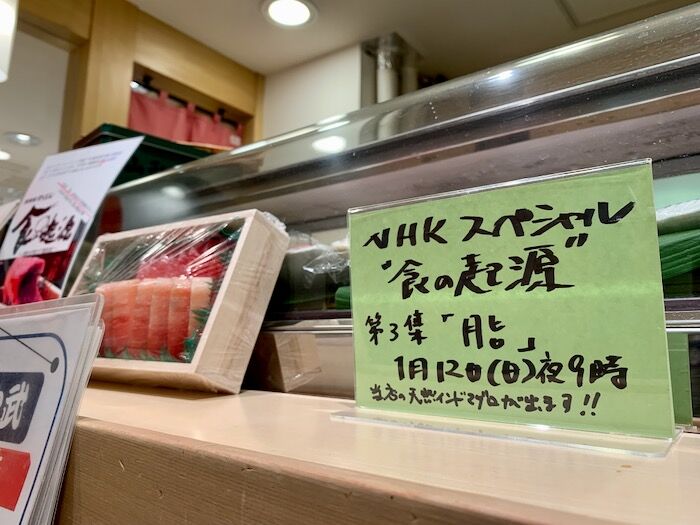 食の起源
武
NHK スペシャル
"食の起源"
第3集「脂」
1月12日(日)夜9時
当店の天然インドマグロが出ます!!